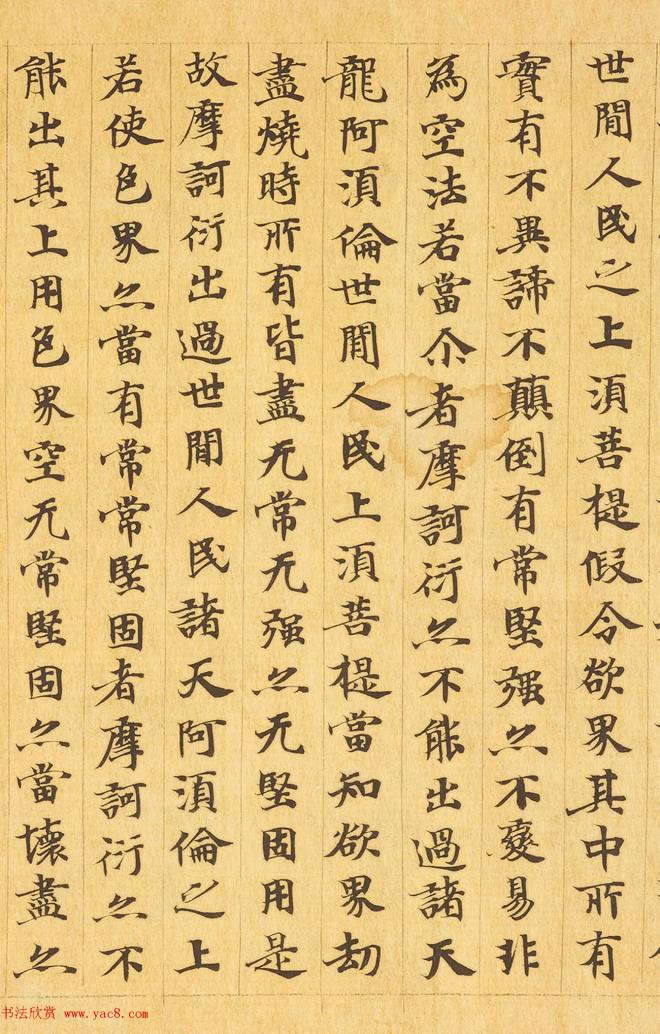 世間人民之上須菩提假令欲界其中所有
實有不異諦不顛倒有常堅强亦不變易非
為空法若當尒者摩訶衍亦不能出過諸天
龍阿須倫世間人民上須菩提當知欲界劫
盡燒時所有皆盡无常无强亦无堅固用是
故摩訶衍出過世間人民諸天阿須倫之上
若使色界亦當有常常堅固者摩訶衍亦不
能出其上用色界空无常堅固亦當壞盡亦
书法欣赏 www.yac8.com